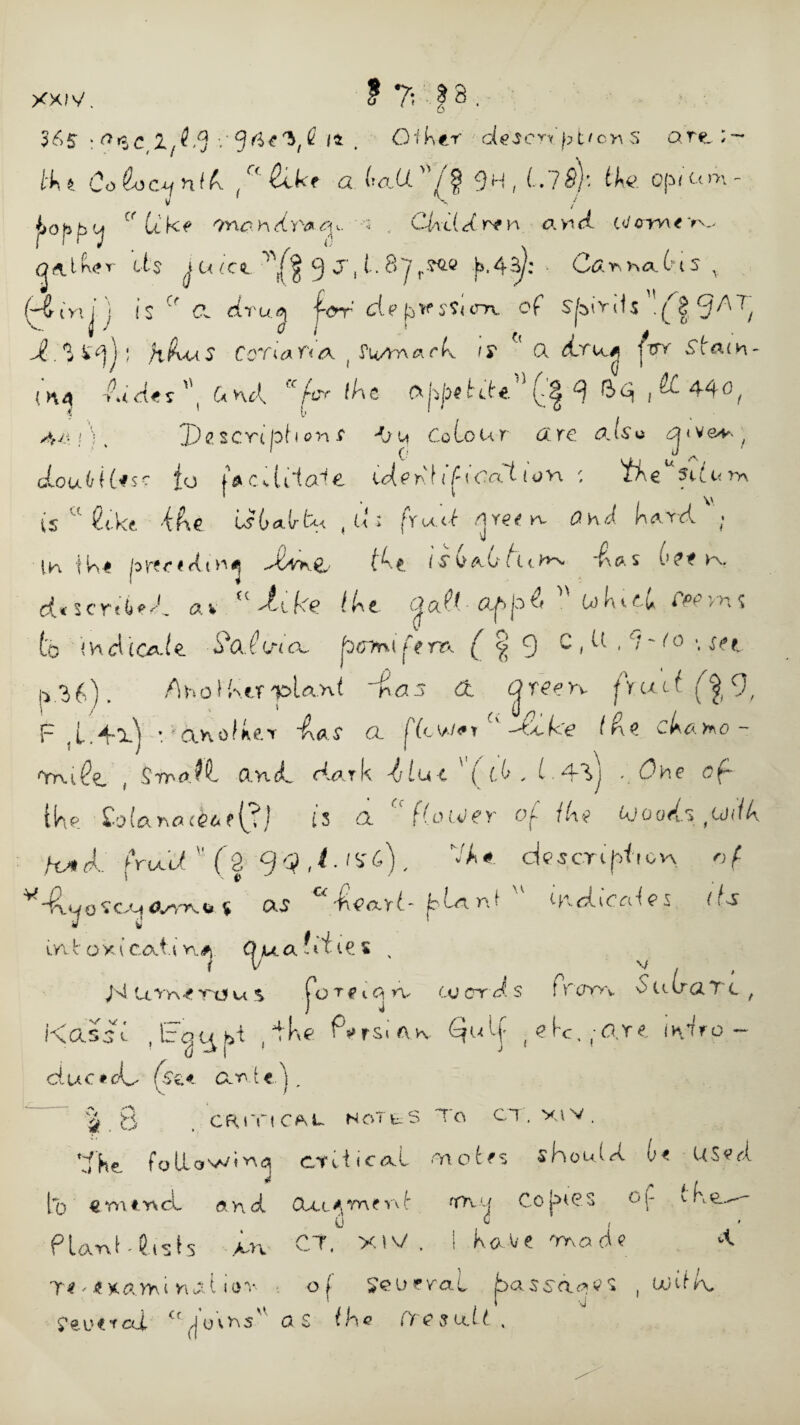 XXIV. § 7; § 8.
Other descriptions are:—
the Colocynth, "like a ball" (§ 9H, l.78): the opium-
poppy "like mandrag. Children and women
gather its juice" (§ 9 J, l. 87, see p.43): Cannabis,
is "a drug for depression of spirits". (§ 9AT,
Rhus coriaria, sumach is "a drug for stain-
ing hides", and "for the appetite" (§ 9 BG, ll. 440,
441). Descriptions by colour are also given,
doubtless to facilitate identification: the situm
is "like the isbabtu, its fruit green and hard";
in the preceding line, the isbabtum has been
described as "like the gall-apple" which seems
to indicate Salvia pomifera (§ 9 C, ll. 9-10; see
p.36). Another plant has a green fruit (§ 9,
F, l.42); another has a flower "like the chamo-
mile, small and dark blue" (ib, l. 43). One of
the Solanaceae(?) is a "flower of the woods, with
red fruit" (§ 9Q, l. 156). The description of
Hyoscyamus as "heart-plant" indicates its
intoxicating qualities.
Numerous foreign words from Subari,
Kassi, Egypt, the Persian Gulf, etc., are intro-
duced (see ante).
§. 8. CRITICAL NOTES TO CT. XIV.
The following critical notes should be used
to emend and augment my copies of the
Plant-Lists in CT. XIV. I have made a
re-examination of several passages, with
several "joins" as the result.